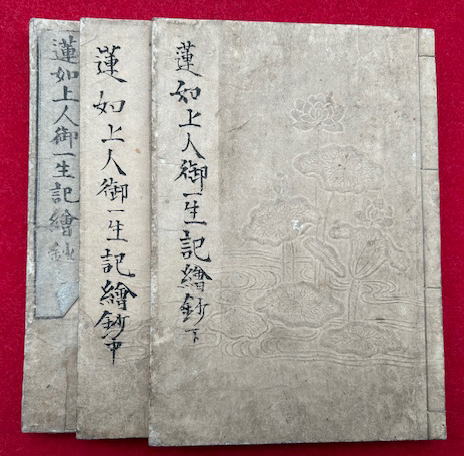 蓮如上人御一生記繪鈔下
蓮如上人御一生記繪鈔中
蓮如上人御一生記繪鈔